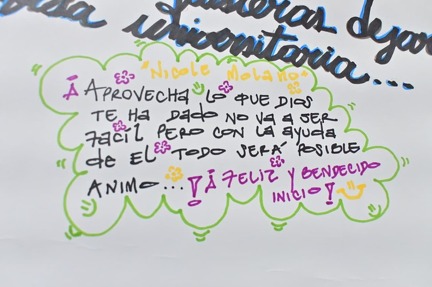 quisieras dejar
universitaria...
*Nicole Molano*
¡APROVECHA LO QUE DIOS
TE HA DADO NO VA A SER
FACÍL PERO CON LA AYUDA
de EL TODO SERÁ POSIBLE
ANIMO...! ¡FELIZ Y BENDECIDO
INICIO!